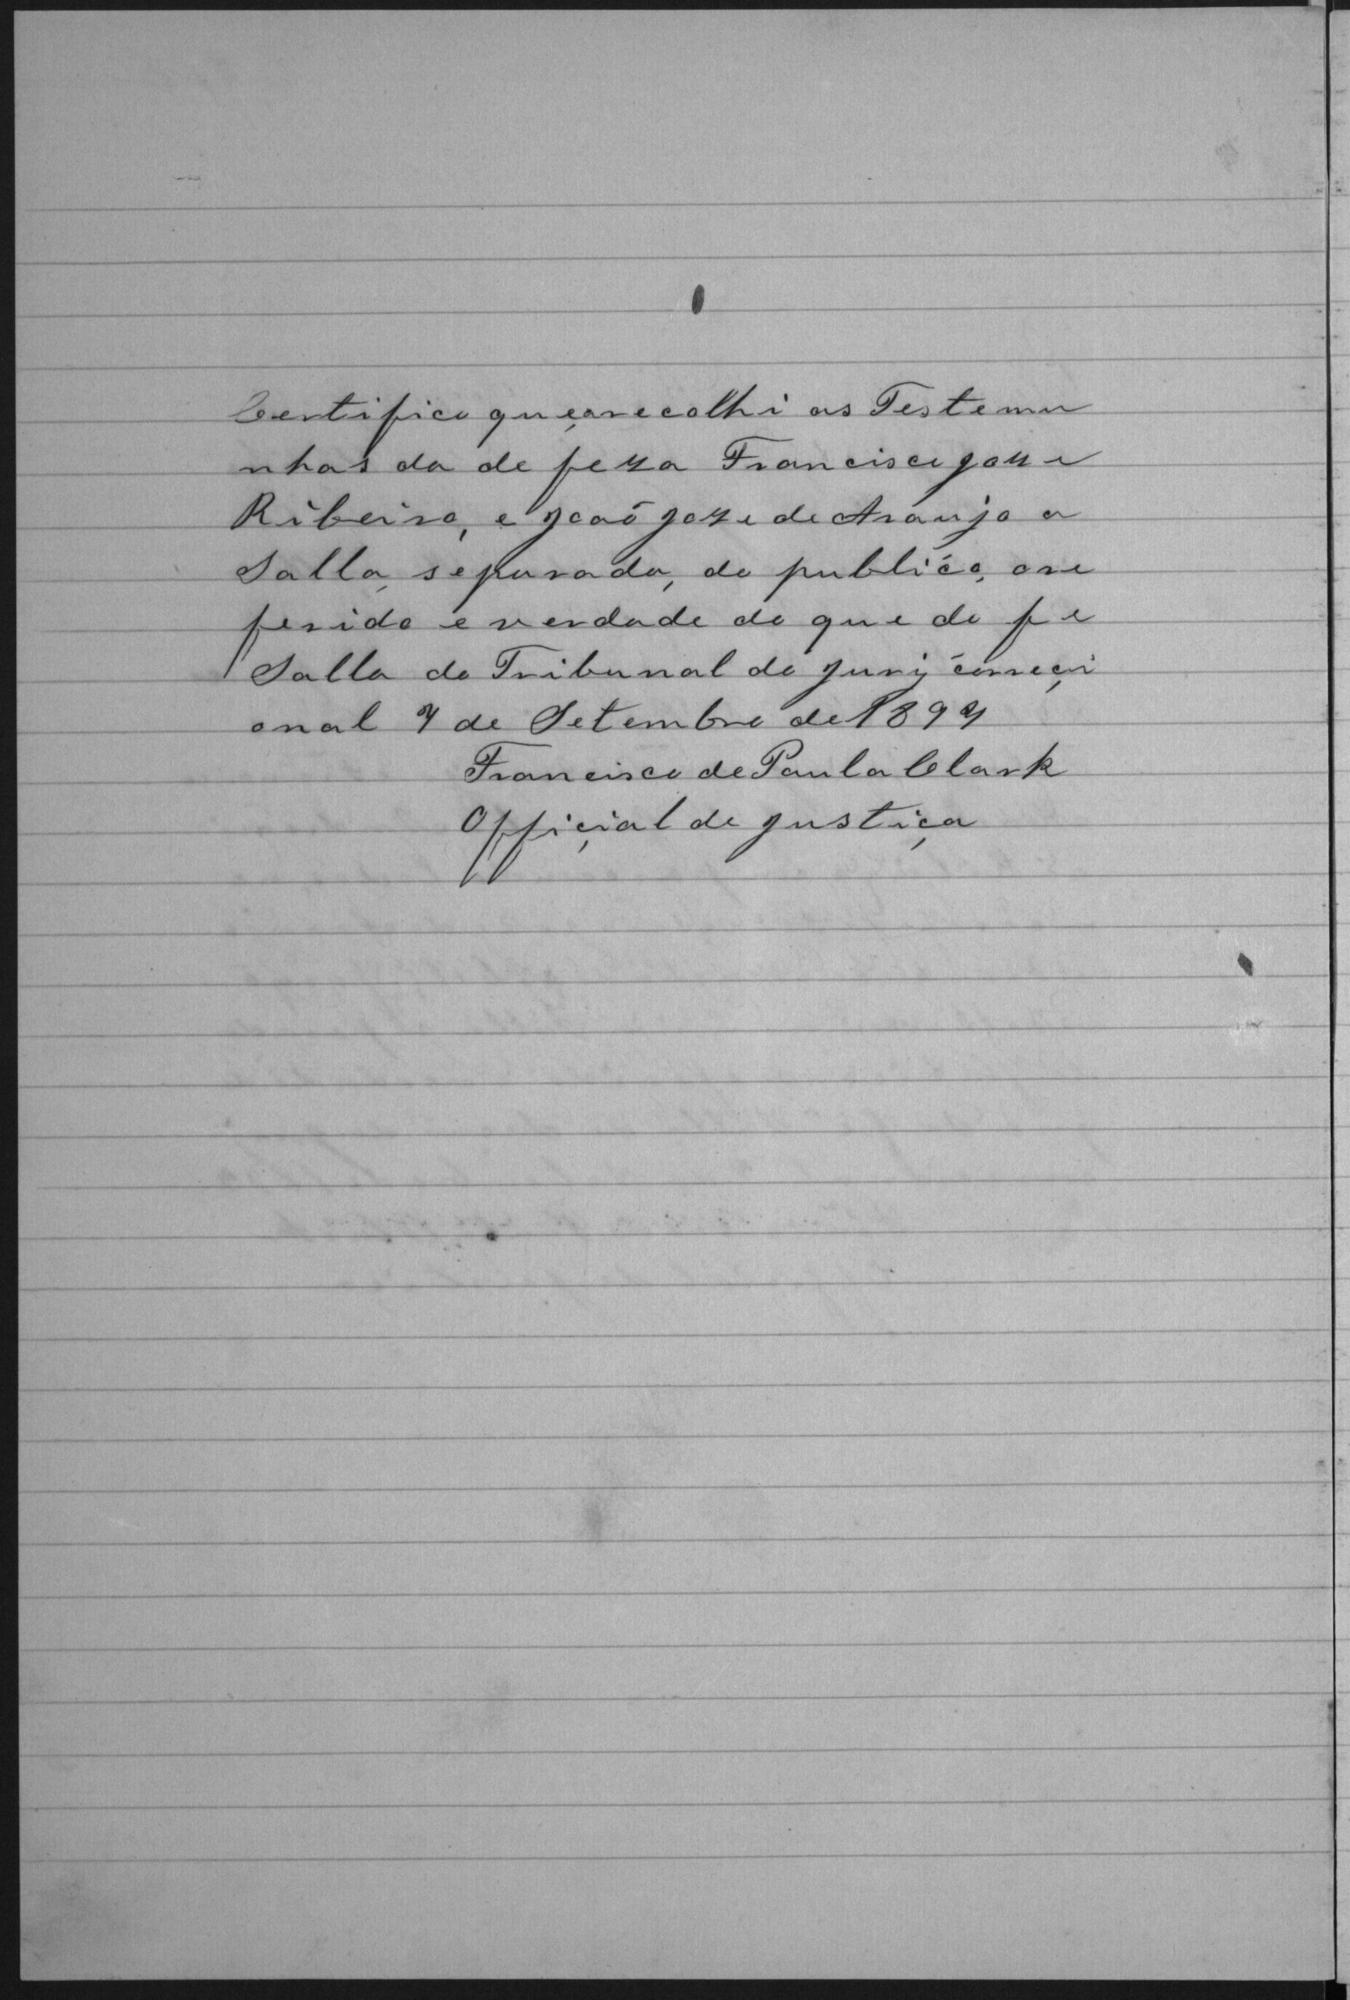 Certifico que arecolhi as Testemu
nhas da de feza Francisco joze
Ribeiro, e João joze de Araujo a
Salla, separada, do publico, ore
ferido e verdade do que do fe
Salla do Tribunal do jury correçi
onal 7 de Setembro de 1897
Francisco de Paula Clark
Offiçial de justiça